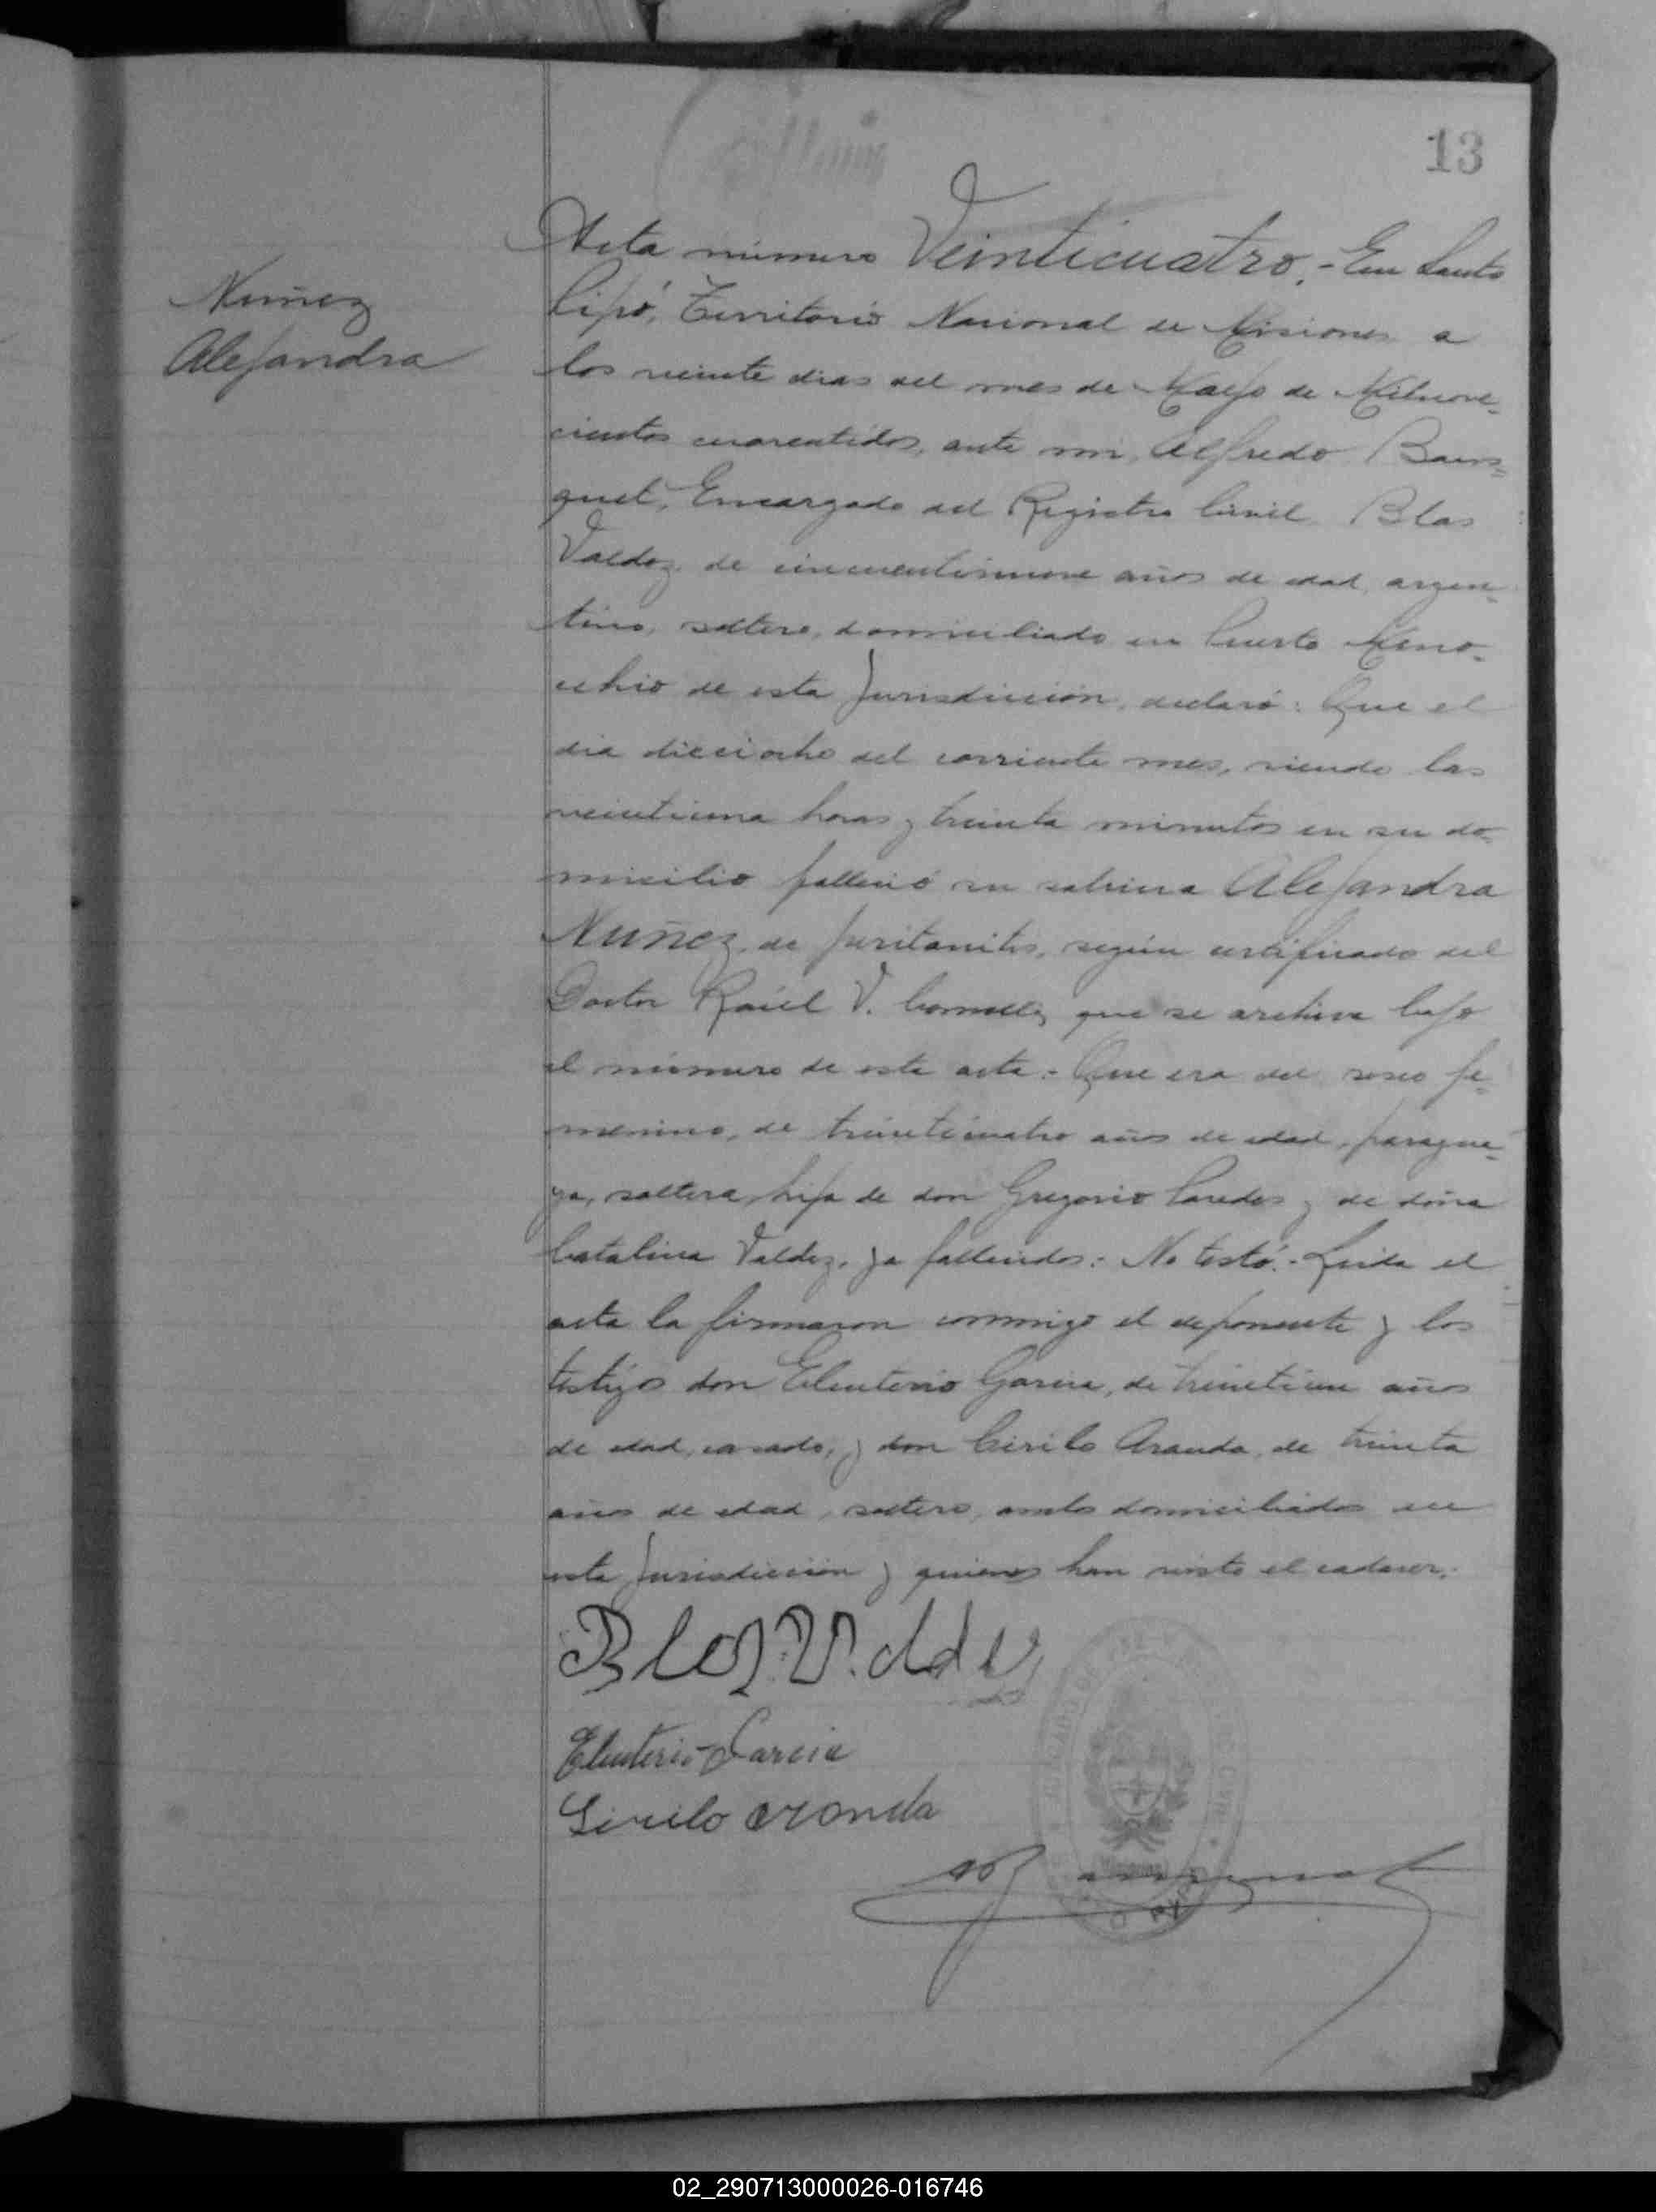 13
Nuñez
Alejandra
Acta número Veinticuatro.- En Santo
Pipó, Territorio Nacional de Misiones a
los veinte dias del mes de Mayo de Milnove-
cientos cuarentidos, ante mi, Alfredo
Encargado del Registro Civil Blas
Valdez, de cincuentinueve años de edad, argen-
tino, soltero, domiciliado en Puerto Mino-
cchio de esta Jurisdicción, declaró: Que el
dia dieciocho del corriente mes, siendo las
veintiuna horas y treinta minutos en su do-
micilio falleció su sobrina Alejandra
Nuñez, de peritonitis, según certificado del
Doctor Raúl V. que se archiva bajo
el número de esta acta.- Que era del sexo fe-
menino, de trienticuatro años de edad, paragua-
ya, soltera, hija de don Gregorio Paredes y de doña
Catalina Valdez, ya fallecidos.- No testó.- Leida el
acta la firmaron conmigo el deponente y los
testigos don Eleuterio Garcia, de trientiun años
de edad, casado, y don Cirilo Aranda, de treinta
años de edad, soltero, ambos domiciliados en
esta Jurisdicción y quienes han visto el cadaver.-
Blas Valdez
Eleuterio Garcia
Cirilo Aranda
02_290713000026-016746